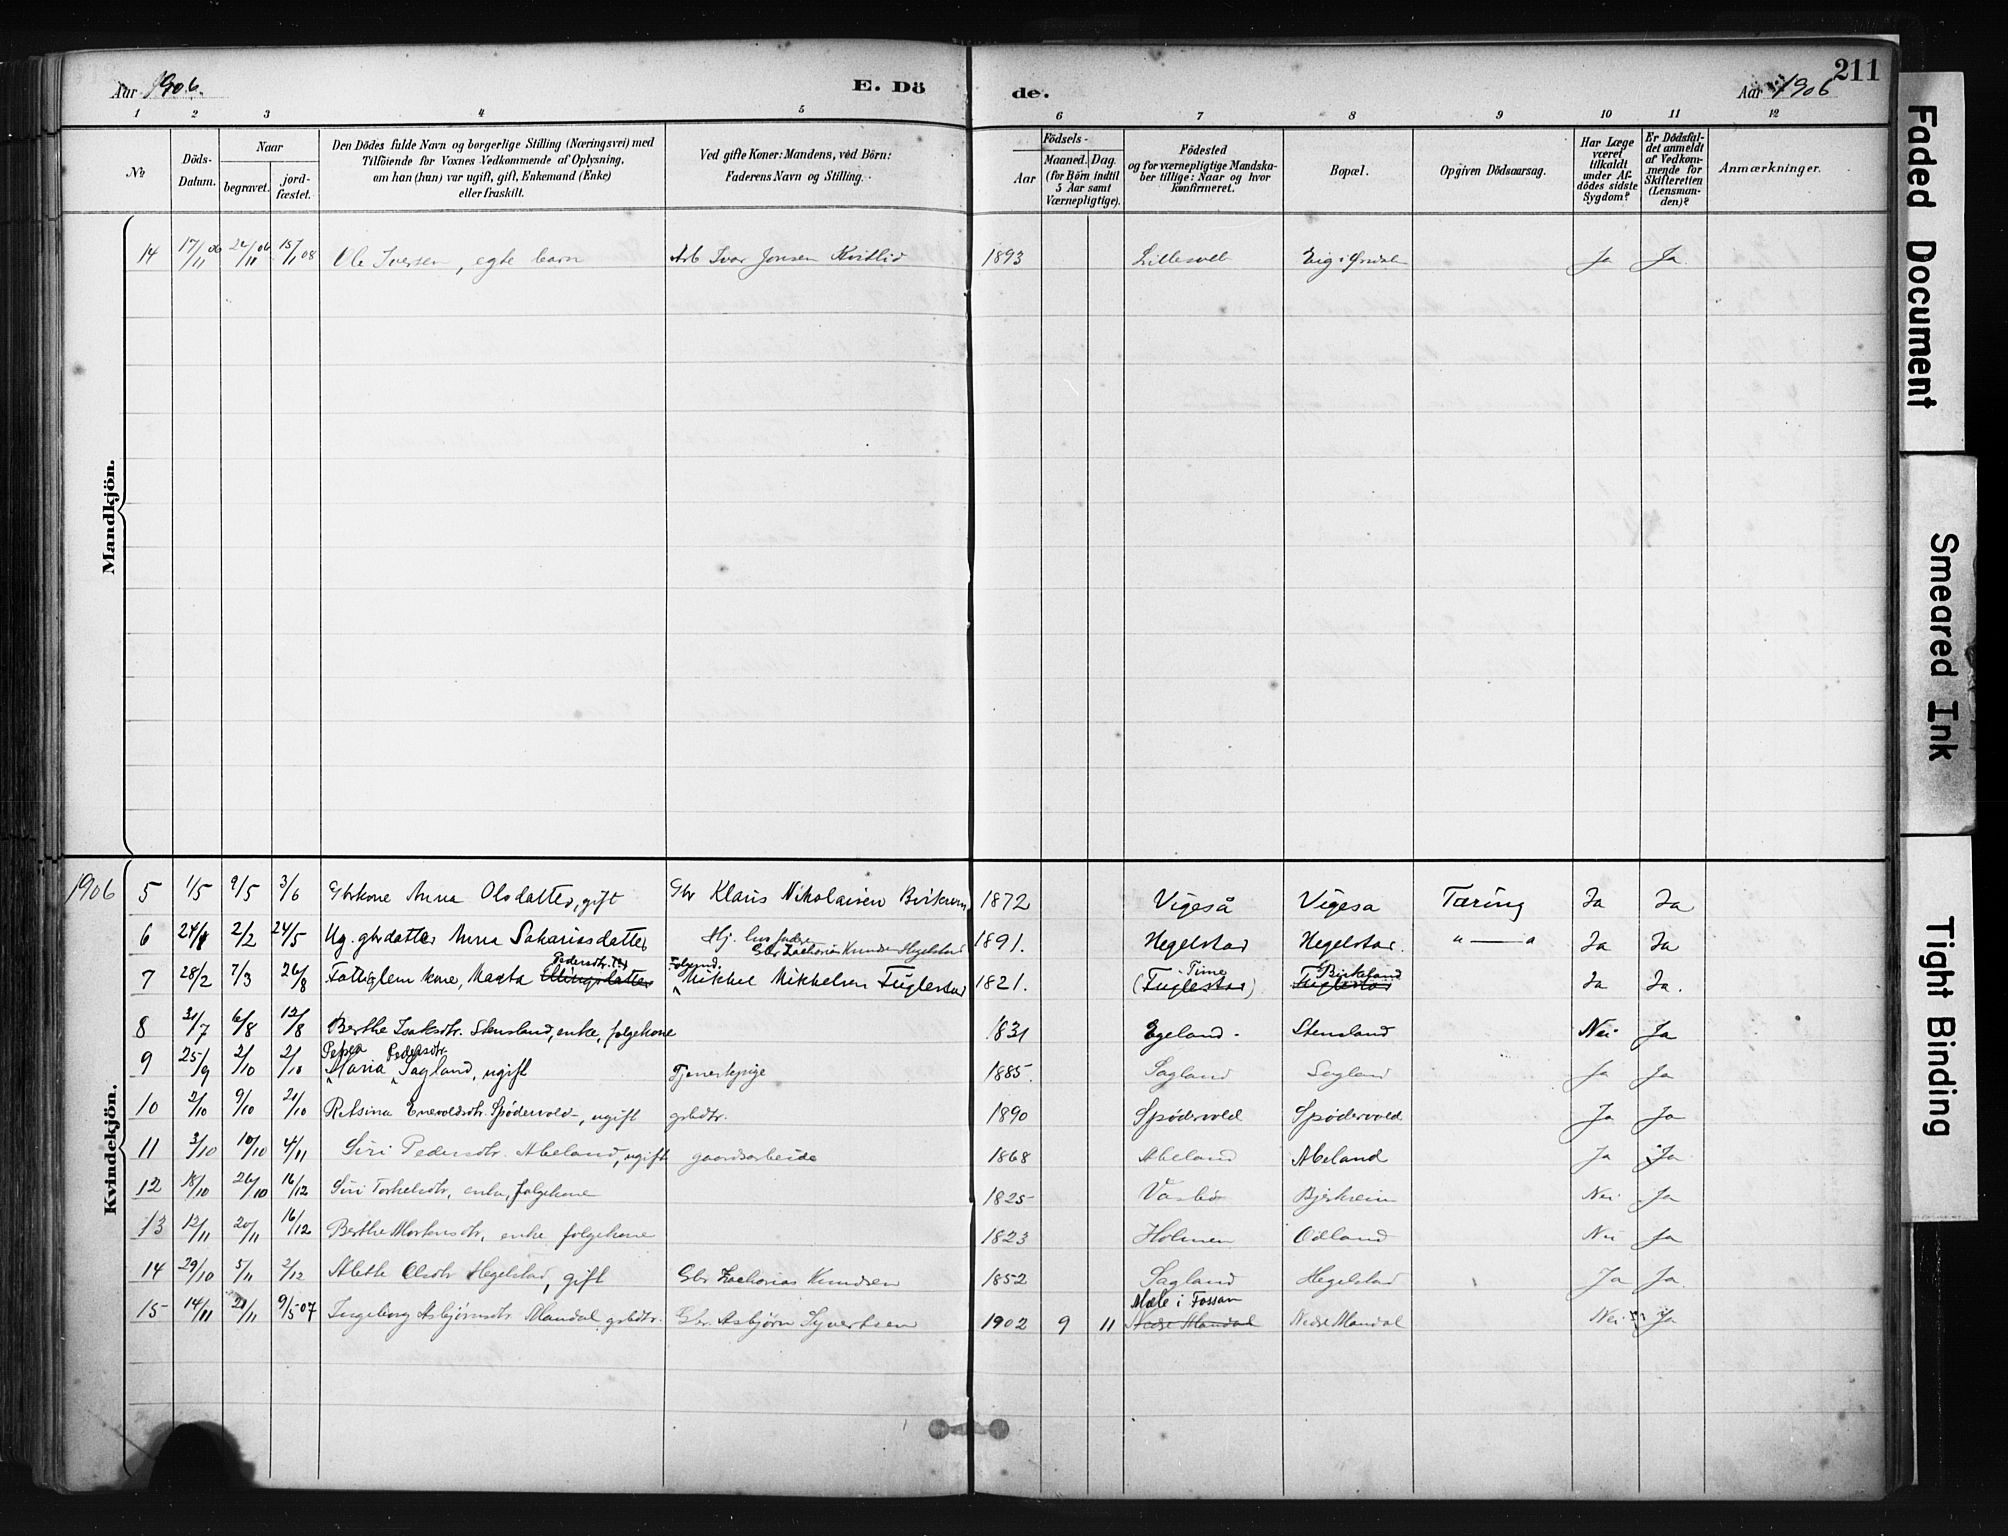 Aar 1906.
E. Dö
de.
Aar 1906
211
1 2 3 4 5 6 7 8 9 10 11 12
No
Döds-Datum.
Naar
begravet.
jord-fæstet.
Den Dödes fulde Navn og borgerlige Stilling (Næringsvei) med
Tilföiende for Voxnes Vedkommende af Oplysning,
om han (hun) var ugift, gift, Enkemand (Enke)
eller fraskilt.
Ved gifte Koner: Mandens, ved Börn:
Faderens Navn og Stilling.
Födsels-
Aar
Maaned. Dag.
(for Börn indtil
5 Aar samt
Værnepligtige).
Födested
og for værnepligtige Mandska-
ber tillige: Naar og hvor
Konfirmeret.
Bopæl.
Opgiven Dödsaarsag.
Har Læge
været
tilkaldt
under Af-
dödes sidste
Sygdom?
Er Dödsfal-
det anmeldt
af Vedkom-
mende for
Skifteretten
(Lensman-
den)?
Anmærkninger.
Mandkjön.
14 17/11 06 24/11 06 15/1 08 Ole Iversen, egte barn Arb Ivar Jonsen Kvitlid 1893 Eig i Ørsdal Ja Ja
Kvindekjön.
1906 5 1/5 9/5 3/6 Gbrkone Anna Olsdatter, gift Gbr Klaus Nikolaisen Birkrem 1872 Vigeså Vigesa Tæring Ja Ja
6 2/2 24/5 Ug. gbrdatter Anna Sakariasdatter Gbr Zacharias Knudsen Hegelstad 1891. Hegelstad Hegelstad. "—" Ja Ja
7 28/2 7/3 26/8 Fattiglem kone, Marta Ellingsdatter Pedersdtr. Mikkel Mikkelsen Fuglestad 1821. (Fuglestad) Time Fuglestad Birkeland Ja Ja.
8 31/7 6/8 12/8 Berthe Isaksdtr. Stensland, enke, folgekone 1831 Egeland Stensland Nei Ja
9 25/9 2/10 2/10 Maria Pedersdtr. Sagland, ugift Tjenestepige 1885. Sagland Sagland Ja Ja
10 2/10 9/10 21/10 Retsina Enevoldsdtr. Spødervold, ugift gbdtr. 1890 Spødervold Spødervold Ja Ja
11 3/10 10/10 4/11 Siri Pedersdtr. Abeland, ugift gaardsarbeide 1868 Abeland Abeland Ja Ja
12 18/10 26/10 16/12 Siri Torkelsdtr, enke, folgekone 1825 Vasbø Bjerkreim Nei Ja
13 12/11 20/11 16/12 Berthe Mortensdtr, enke folgekone 1823 Holmen Odland Nei Ja
14 29/10 5/11 2/12 Alette Olsdtr Hegelstad, gift Gbr Zacharias Knudsen 1852 Sagland Hegelstad Ja Ja.
15 14/11 21/11 9/5 07 Ingeborg Asbjørnsdtr Mandal gbdtr. Gbr. Asbjørn Syvertsen 1902 9 11 Mæle i Fossan Nedre Mandal Nedre Mandal Nei Ja
Faded Document
Smeared Ink
Tight Binding